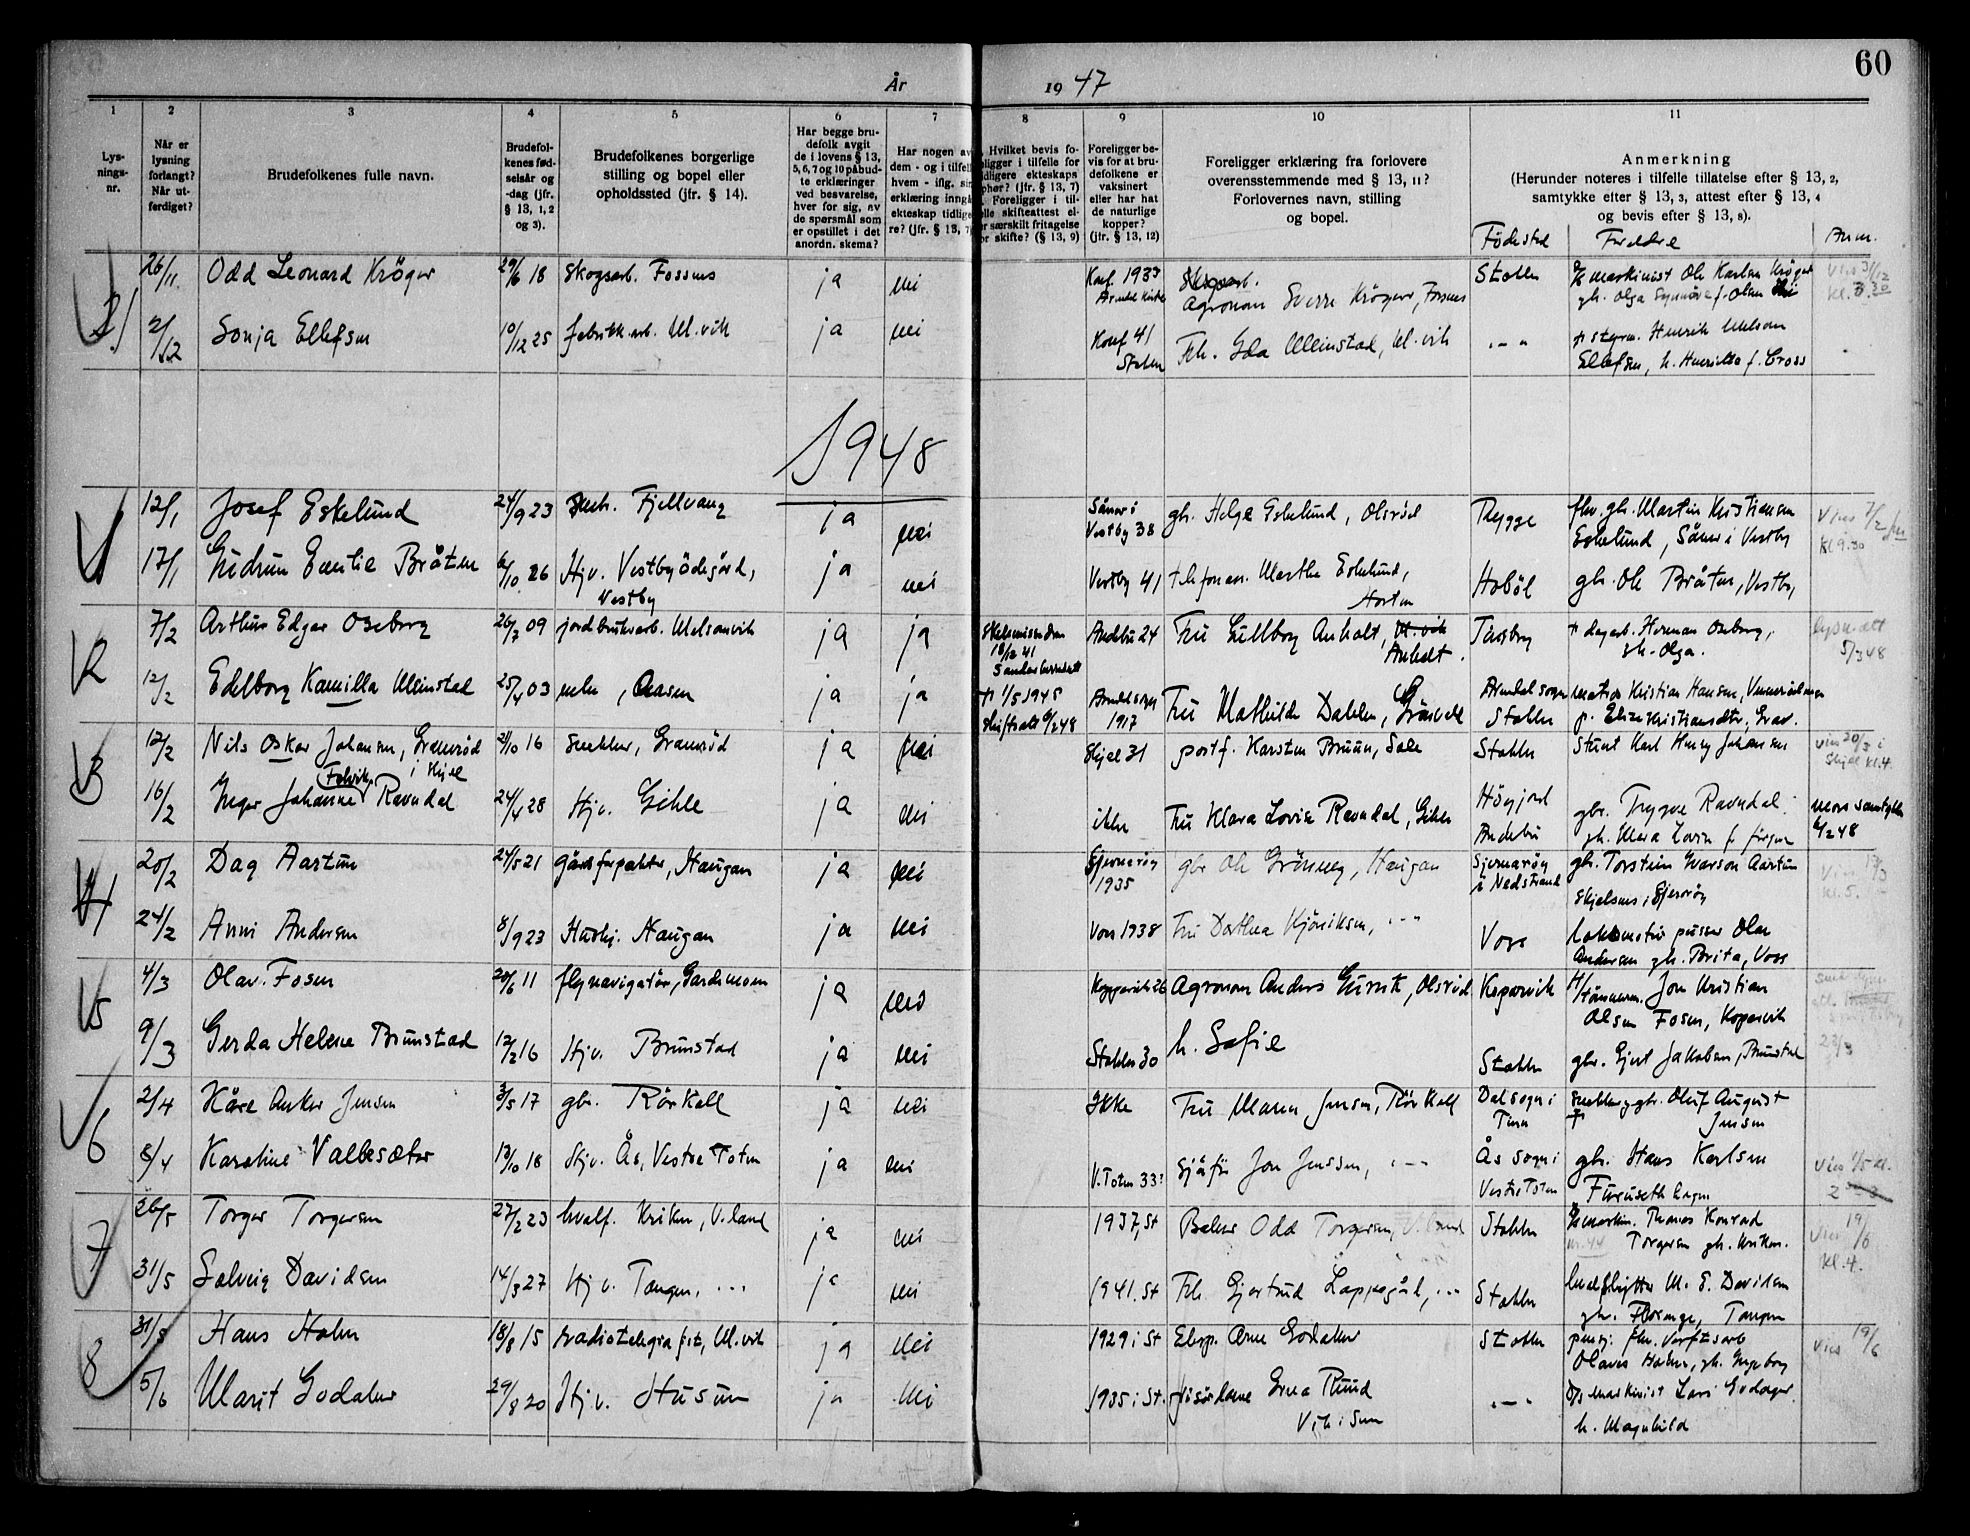 60
År 1947
1 2 3 4 5 6 7 8 9 10 11
Lys-
nings-
nr.
Når er
lysning
forlangt?
Når ut-
ferdiget?
Brudefolkenes fulle navn.
Brudefol-
kenes fød-
selsår og
-dag (jfr.
§ 13, 1, 2
og 3).
Brudefolkenes borgerlige
stilling og bopel eller
opholdssted (jfr. § 14).
Har begge bru-
defolk avgit
de i lovens § 13,
5, 6, 7 og 10 påbud-
te erklæringer
ved besvarelse,
hver for sig, av
de spørsmål som
er opstillet i det
anordn. skema?
Har nogen av
dem - og i tilfelle
hvem - iflg. sin
erklæring inngå
ekteskap tidlige
re? (jfr. § 13, 7)
Hvilket bevis fo-
religger i tilfelle for
tidligere ekteskaps
ophør? (jfr. § 13, 7)
Foreligger i til-
felle skifteattest el-
er særskilt fritagelse
or skifte? (§ 13, 9)
Foreligger be-
vis for at bru-
defolkene er
vaksinert
eller har hat
de naturlige
kopper?
(jfr. § 13, 12)
Foreligger erklæring fra forlovere
overensstemmende med § 13, 11?
Forlovernes navn, stilling
og bopel.
Anmerkning
(Herunder noteres i tilfelle tillatelse efter § 13, 2,
samtykke efter § 13, 3, attest efter § 13, 4
og bevis efter § 13, 8).
Fødested Foreldre Anm.
26/11 Odd Leonard Krøger 29/6 18 Skogsarb. Fossnes ja nei Konf. 1933 Agronom Sverre Krøger, Fossnes Stokke maskinist Ole Karlsen Krøger
gh. Olga Synnøve f. Olsen
2/12 Sonja Ellefsen 10/12 25 fabrikkarb. M.vik ja nei Konf 41 Stokke Frk. Ida Meinstad, M.vik -"- styrm. Henrik Nilsen
Ellefsen, h. Henrikka f. Cross
1948
1 12/1 Josef Eskelund 24/9 23 Fjellvang ja nei Såner i Vestby 38 gb. Helge Eskelund, Olsrød Rygge fhv. gb. Martin Kristiansen
Eskelund, Såner i Vestby
17/1 Gudrun Emilie Bråten 6/10 26 Hjv. Vestbyødegård, Vestby ja nei Vestby 41 Marthe Eskelund, Horten Hobøl gb. Ole Bråten, Vestby
2 7/2 Arthur Edgar Oseberg 26/3 09 jordbruksarb. Melsomvik ja ja 18/12 41 Andebu 24 Fru Lillborg Anholt, Anholt. Tønsberg dagarb. Herman Oseberg,
gh. Olga. lysn. att 5/3 48
12/2 Edelborg Kamilla Meinstad 25/4 03 Åasen ja ja 1/5 1945 skifteatt 6/2 48 Arendal sogn 1917 Fru Mathilde Dahlen, Arendal sogn Stokke matros Kristian Hansen,
3 12/2 Nils Oskar Johansen, Gramrød i Skjee 21/10 16 snekker, Gramrød ja nei Skjee 31 postf. Karsten Bruun, Sole Stokke Karl Henry Johansen vies 20/3 i Skjee kl. 4.
16/2 Inger Johanne Ravndal 24/4 28 Hjv. Gihle ja nei ikke Fru Klara Lovise Ravndal, Gihle Høyjord Andebu gbr. Trygve Ravndal mors samtykke 6/2 48
4 20/2 Dag Aartun 24/5 21 gårdsforpakter, Haugan ja nei Sjernarøy 1935 gbr. Ole Grønneng, Haugan Sjernarøy i Nedstrand gb. Torstein Ivarson Aartun
Skjelsnes i Sjernarøy
24/2 Anni Andersen 8/9 23 Hushj. Haugan ja nei Voss 1938 Fru Dorthea Kjøniksen, -"- Voss lokomotivpusser Olav
Andersen gh. Brita, Voss
5 4/3 Olav Fosen 20/6 11 flynavigatør, Gardemoen ja nei Kopervik 26 Agronom Anders Gurnik, Olsrød Kopervik tømmerm. Jon Kristian
Olsen Fosen, Kopervik
9/3 Gerda Helene Brunstad 12/2 16 Hjv. Brunstad ja nei Stokke 30 h. Sofie Stokke gbr. Gjert Jakobsen, Brunstad 23/3
6 2/4 Kåre Anker Jensen 3/5 17 gbr. Rørkoll ja nei Ikke Fru Maren Jensen, Rørkoll Dal sogn i Tinn snekker, gbr. Oluf August
Jensen
8/4 Karoline Valbesæter 13/10 18 Hjv. Ås, Vestre Toten ja nei V. Toten 33 Sjåfør Jon Jenssen, -"- Ås sogn i Vestre Toten gbr. Hans Karlsen
Furuseth hagen
7 26/5 Torger Torgersen 27/2 23 hvalf. Kriken, V.land ja nei 1937, St Baker Odd Torgersen, V.land Stokke maskin. Thomas Konrad
Torgersen gh. Kriken. 19/6 kl. 4.
31/5 Solveig Davidsen 14/3 27 Hjv. Tangen, -"- ja nei 1941. St Frk. Gjertrud Lappegård, -"- Stokke M. E. Davidsen
gh. Florence, Tangen
8 31/5 Hans Holm 18/8 15 radiotelegrafist, M.vik ja nei 1929 i St Eksp. Arne Godaker Stokke pensj. fhv. verftsarb
Olaves Holm, gh. Ingeborg vies 19/6
5/6 Marit Godaker 29/8 20 Hjv. Husum ja nei 1935 i St. frisørdame Erna Ruud
Vik i Sem -"- maskinist Lars Godager
h. Magnhild